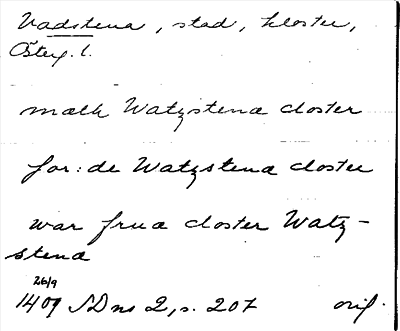 Vadstena, stad, kloster,
Östg. l.
mællæ Watzstena closter
for:de Watzstena closter
war frua closter Watz-
stena
26/9
1409 SD ns 2, s. 207 orig.